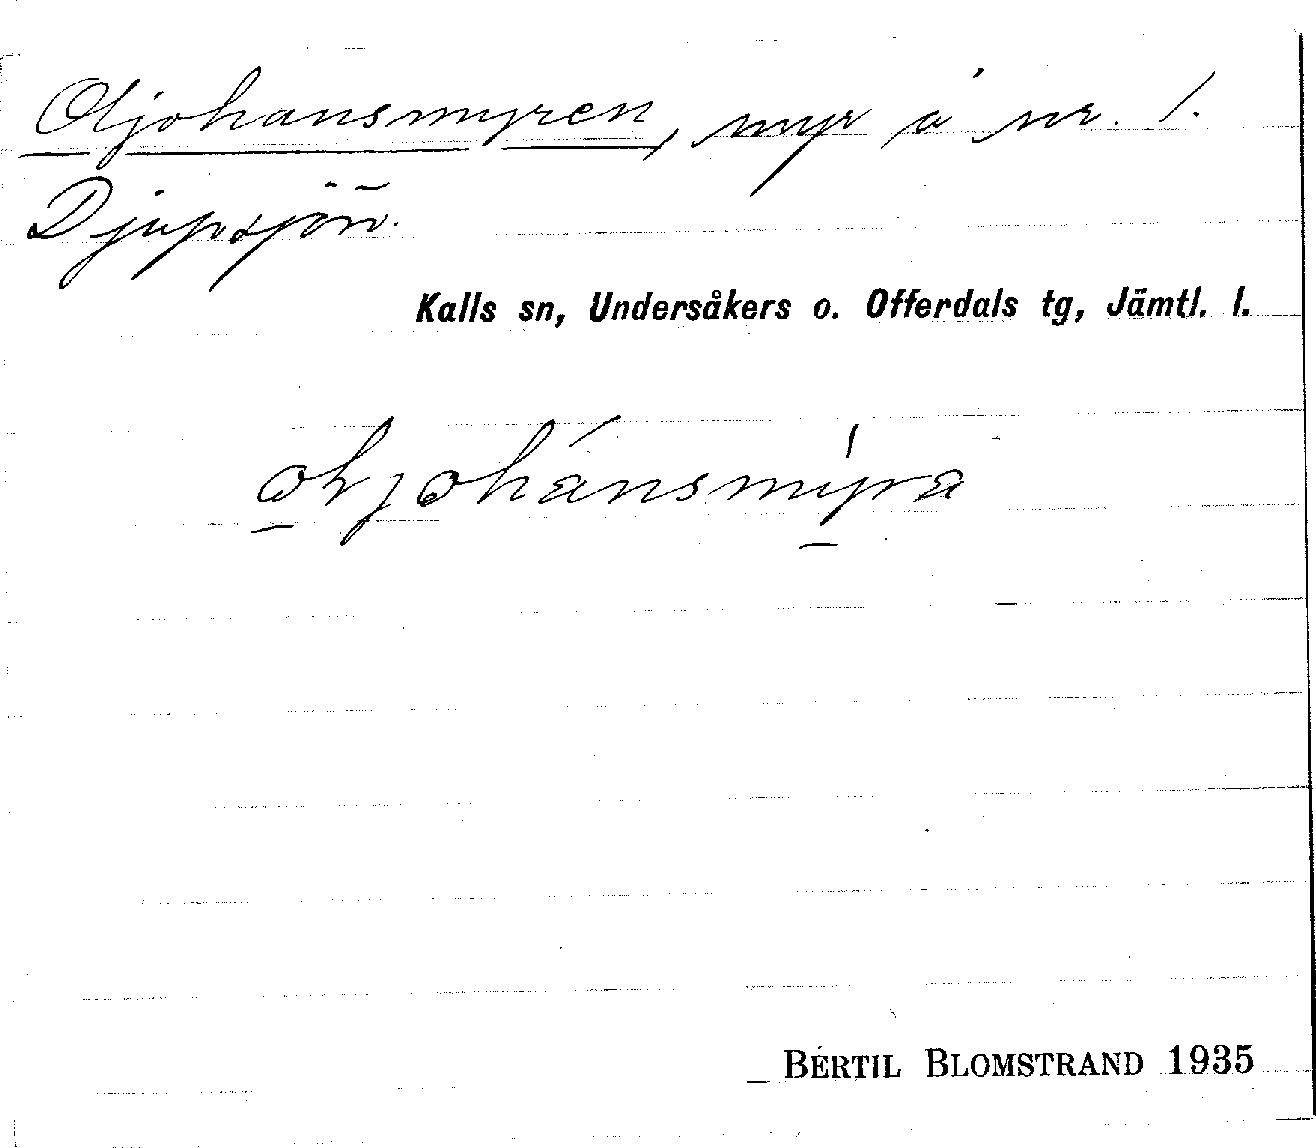 Oljohansmyren, myr å nr. 1.
Djupsjön.
Kalls sn, Undersåkers o. Offerdals tg, Jämtl. l.
BERTIL BLOMSTRAND 1935